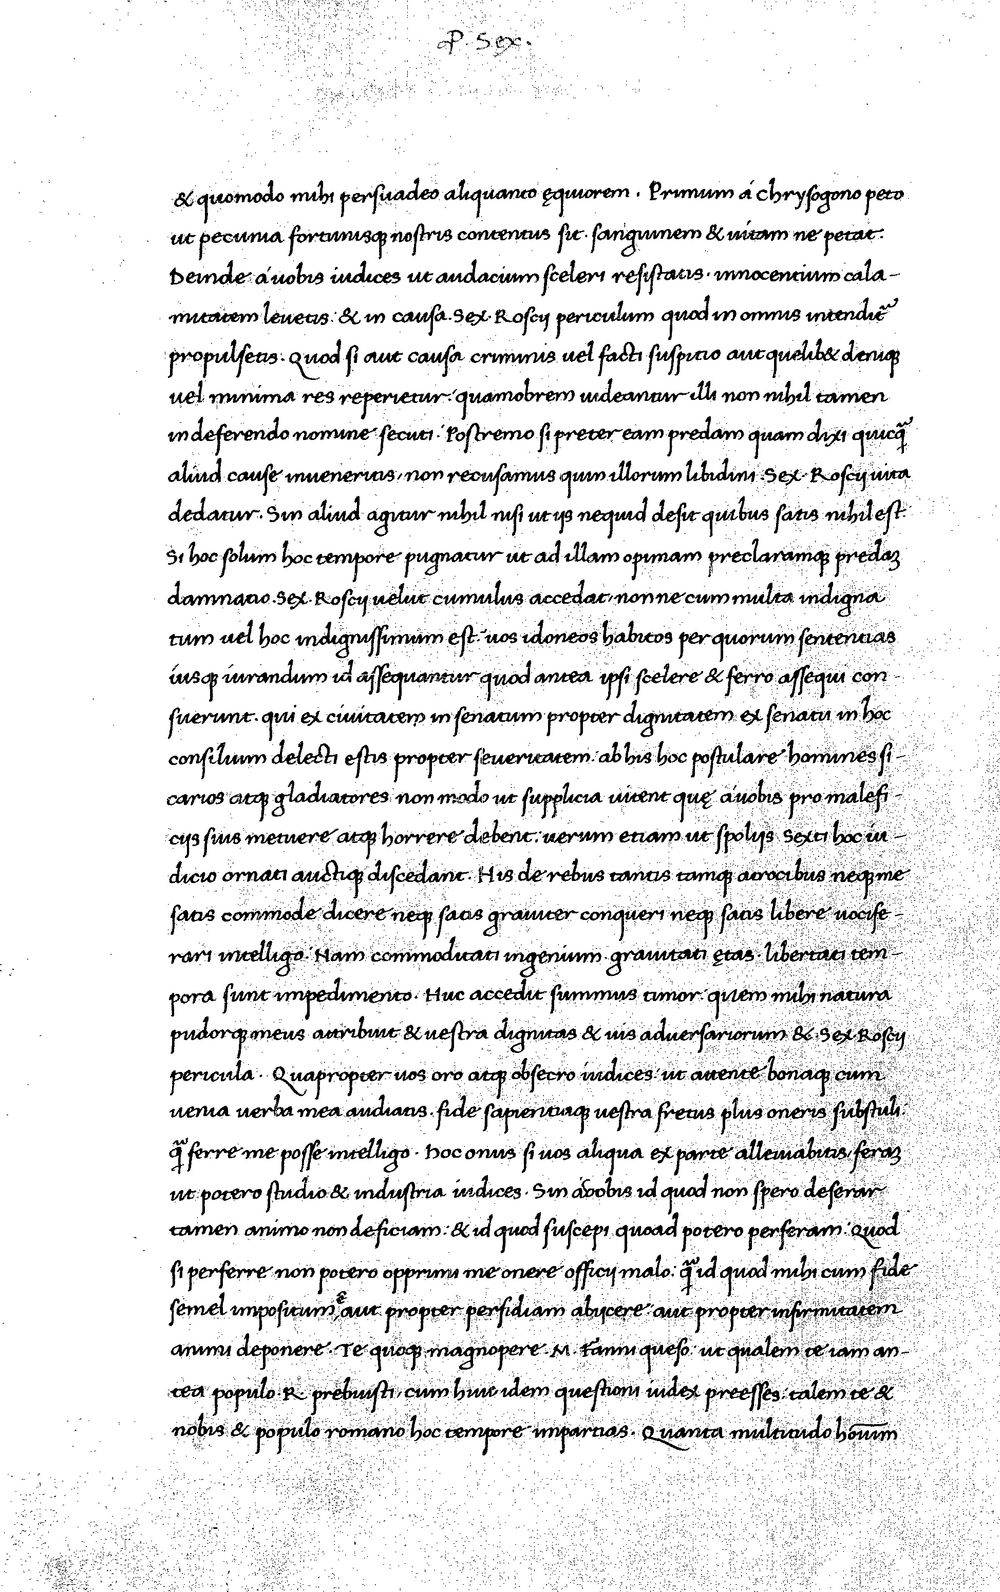 P. Sex.
& quomodo mihi persuadeo aliquanto ęquiorem. Primum á Chrysogono peto
ut pecunia fortunisq nostris contentus sit. sanguinem & uitam ne petat.
Deinde á uobis iudices ut audacium sceleri resistatis. innocentium cala-
mitatem leuetis: & in causa. Sex. Roscij periculum quod in omnis intendit᷑
propulsetis. Quod si aut causa criminis uel facti suspitio aut quelib& deniq
uel minima res reperietur: quamobrem uideantur illi non nihil tamen
in deferendo nomine secuti. Postremo si preter eam predam quam dixi quicq̃
aliud cause inueneritis, non recusamus quin illorum libidini. Sex. Roscij uita
dedatur. Sin aliud agitur nihil nisi ut ijs nequid desit quibus satis nihil est.
Si hoc solum hoc tempore pugnatur ut ad illam opimam preclaramq predaʒ
damnatio. Sex. Roscij uelut cumulus accedat, nonne cum multa indigna
tum uel hoc indignissimum est: uos idoneos habitos per quorum sententias
iusq iurandum id assequantur quod antea ipsi scelere & ferro assequi con-
suerunt. qui ex ciuitatem in senatum propter dignitatem ex senatu in hoc
consilium delecti estis propter seueritatem: ab his hoc postulare homines si-
carios atq gladiatores non modo ut supplicia uitent quę á uobis pro malefi-
cijs suis metuere atq horrere debent: uerum etiam ut spolijs Sexti hoc iu-
dicio ornati auctiq discedant. His de rebus tantis tamq atrocibus neq me
satis commode dicere neq satis grauiter conqueri neq satis libere uocife-
rari intelligo. Nam commoditati ingenium. grauitati ętas. libertati tem-
pora sunt impedimento. Huc accedit summus timor. quem mihi natura
pudorq meus attribuit & uestra dignitas & uis aduersariorum & Sex Roscij
pericula. Quapropter uos oro atq obsecro iudices. ut attente bonaq cum
uenia uerba mea audiatis. fide sapientiaq uestra fretus plus oneris substuli.
q̃ ferre me posse intelligo. hoc onus si uos aliqua ex parte alleuiabitis, feraʒ
ut potero studio & industria iudices. Sin á uobis id quod non spero deserar
tamen animo non deficiam: & id quod suscepi quoad potero perferam. Quod
si perferre non potero opprimi me onere officij malo: q̃ id quod mihi cum fide
semel impositum ē aut propter persidiam abijcere aut propter infirmitatem
animi deponere. Te quoq magnopere. M. Fanni queso. ut qualem te iam an-
tea populo. R. prebuisti, cum huic idem questioni iudex preesses. talem te &
nobis & populo romano hoc tempore impartias. Quanta multitudo hoīum